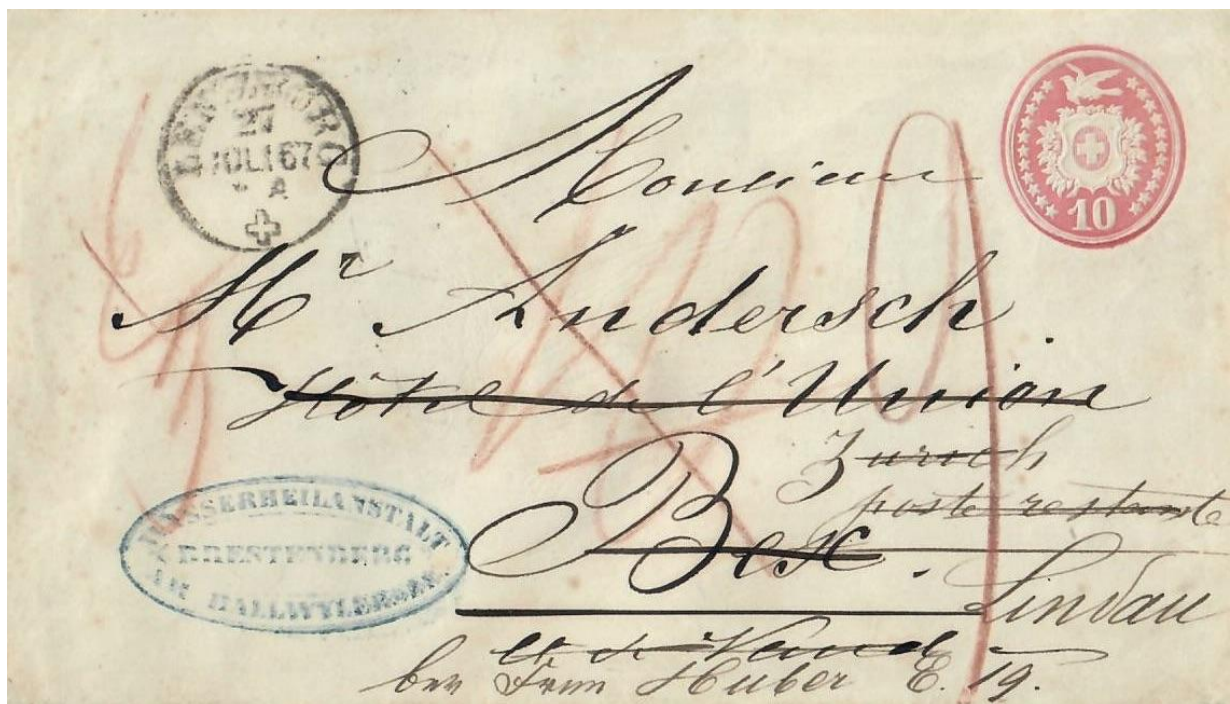 LENZBURG
27
JULI 67
A
10
Monsieur
Mr Andersch.
Hôtel de l'Union
Zurich
poste restante
Bex.
Lindau
Ct de Vaud
bey Frau Huber E. 19.
WASSERHEILANSTALT
BRESTENBERG
AM HALLWYLERSEE